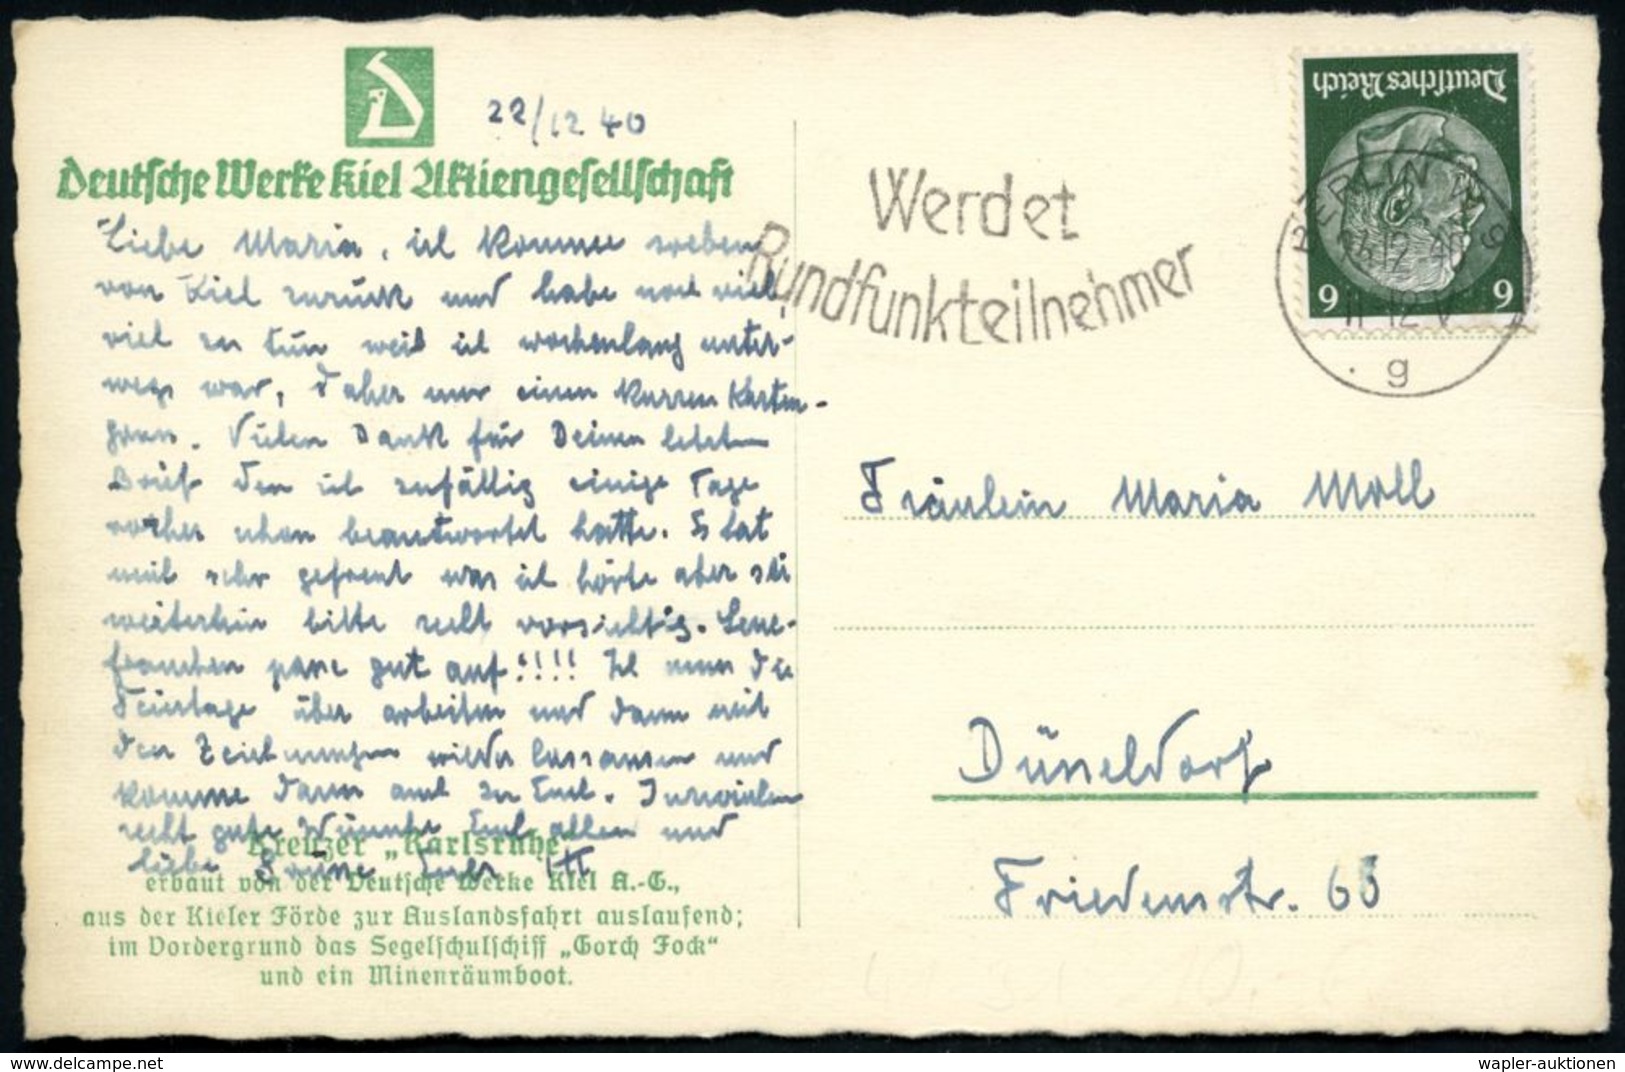 22/12 40
Deutsche Werke Kiel Aktiengesellschaft
Liebe Maria, ich komme soeben
von Kiel zurück und habe noch viel
viel zu tun weil ich wochenlang unter-
wegs war, daher nur einen kurzen Karten-
gruss. Vielen Dank für Deinen letzten
Brief den ich zufällig einige Tage
vorher schon beantwortet hatte. Es hat
mich sehr gefreut was ich hörte aber sei
weiterhin bitte recht vorsichtig.
gut auf!!!! Ich muss die
Feiertage über arbeiten und dann mit
den Zeichnungen wieder und
komme dann auch zu Euch. Inzwischen
recht gute Wünsche Euch allen und
liebe Grüsse Euer
Kreuzer „Karlsruhe“
erbaut von der Deutsche Werke Kiel A.-G.,
aus der Kieler Förde zur Auslandsfahrt auslaufend;
im Vordergrund das Segelschulschiff „Gorch Fock“
und ein Minenräumboot.
Werdet
Rundfunkteilnehmer
Deutsches Reich
6 6
BERLIN
12.40
11-12 V
g
Fräulein Maria Moll
Düsseldorf
Friedenstr. 63
(c) delcampe.net
wapler-auktionen